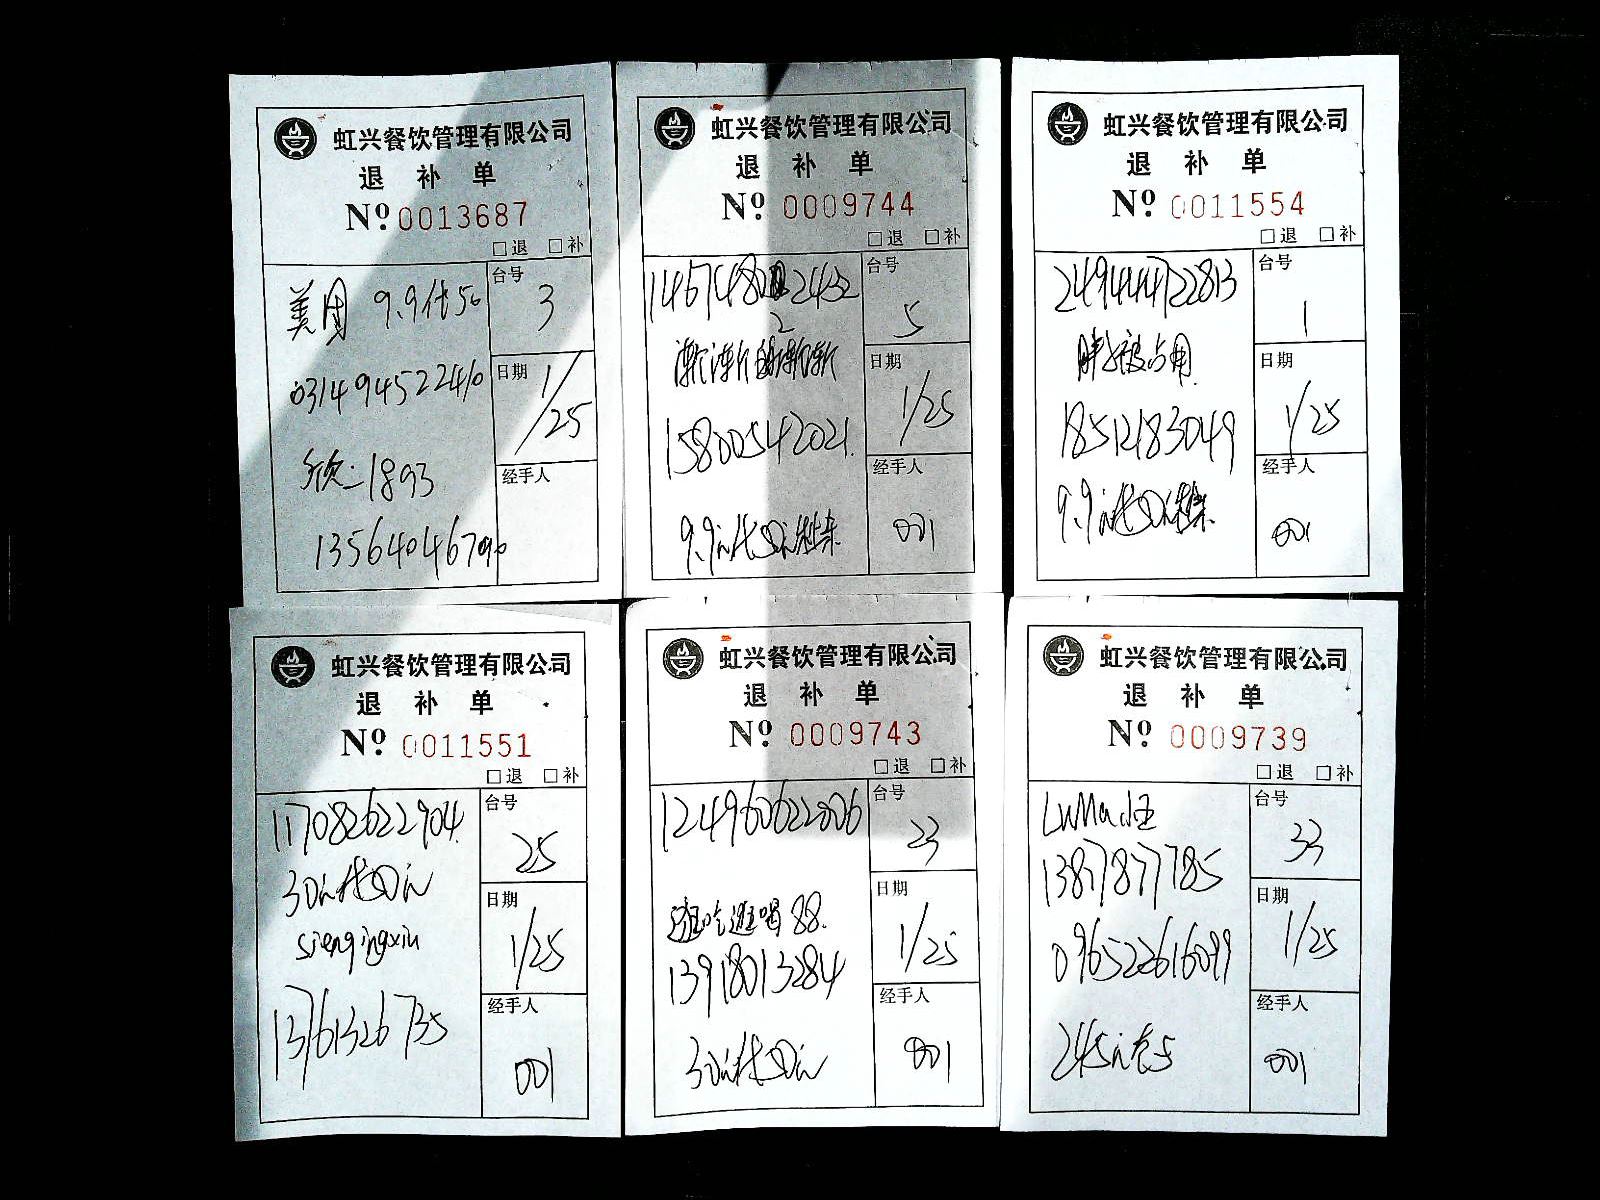 虹兴餐饮管理有限公司
退 补 单
Nº 0013687
□退 □补
台号
3
日期
1/25
经手人
美团 9.9代50
031494522410
欣 1893
虹兴餐饮管理有限公司
退 补 单
Nº 0009744
□退 □补
台号
5
日期
1/25
经手人
001
15800542021
虹兴餐饮管理有限公司
退 补 单
Nº 0011554
□退 □补
249444722813
台号
1
日期
1/25
经手人
001
被占用
18512183049
虹兴餐饮管理有限公司
退 补 单
Nº 0011551
□退 □补
117082622904
台号
25
30元代50元
日期
1/25
sienqingxiu
经手人
001
13761326735
虹兴餐饮管理有限公司
退 补 单
Nº 0009743
□退 □补
124960622006
台号
23
逛吃逛喝88.
日期
1/25
13918013284
经手人
001
30元代50元
虹兴餐饮管理有限公司
退 补 单
Nº 0009739
□退 □补
台号
33
13877877785
日期
1/25
096522616099
经手人
001